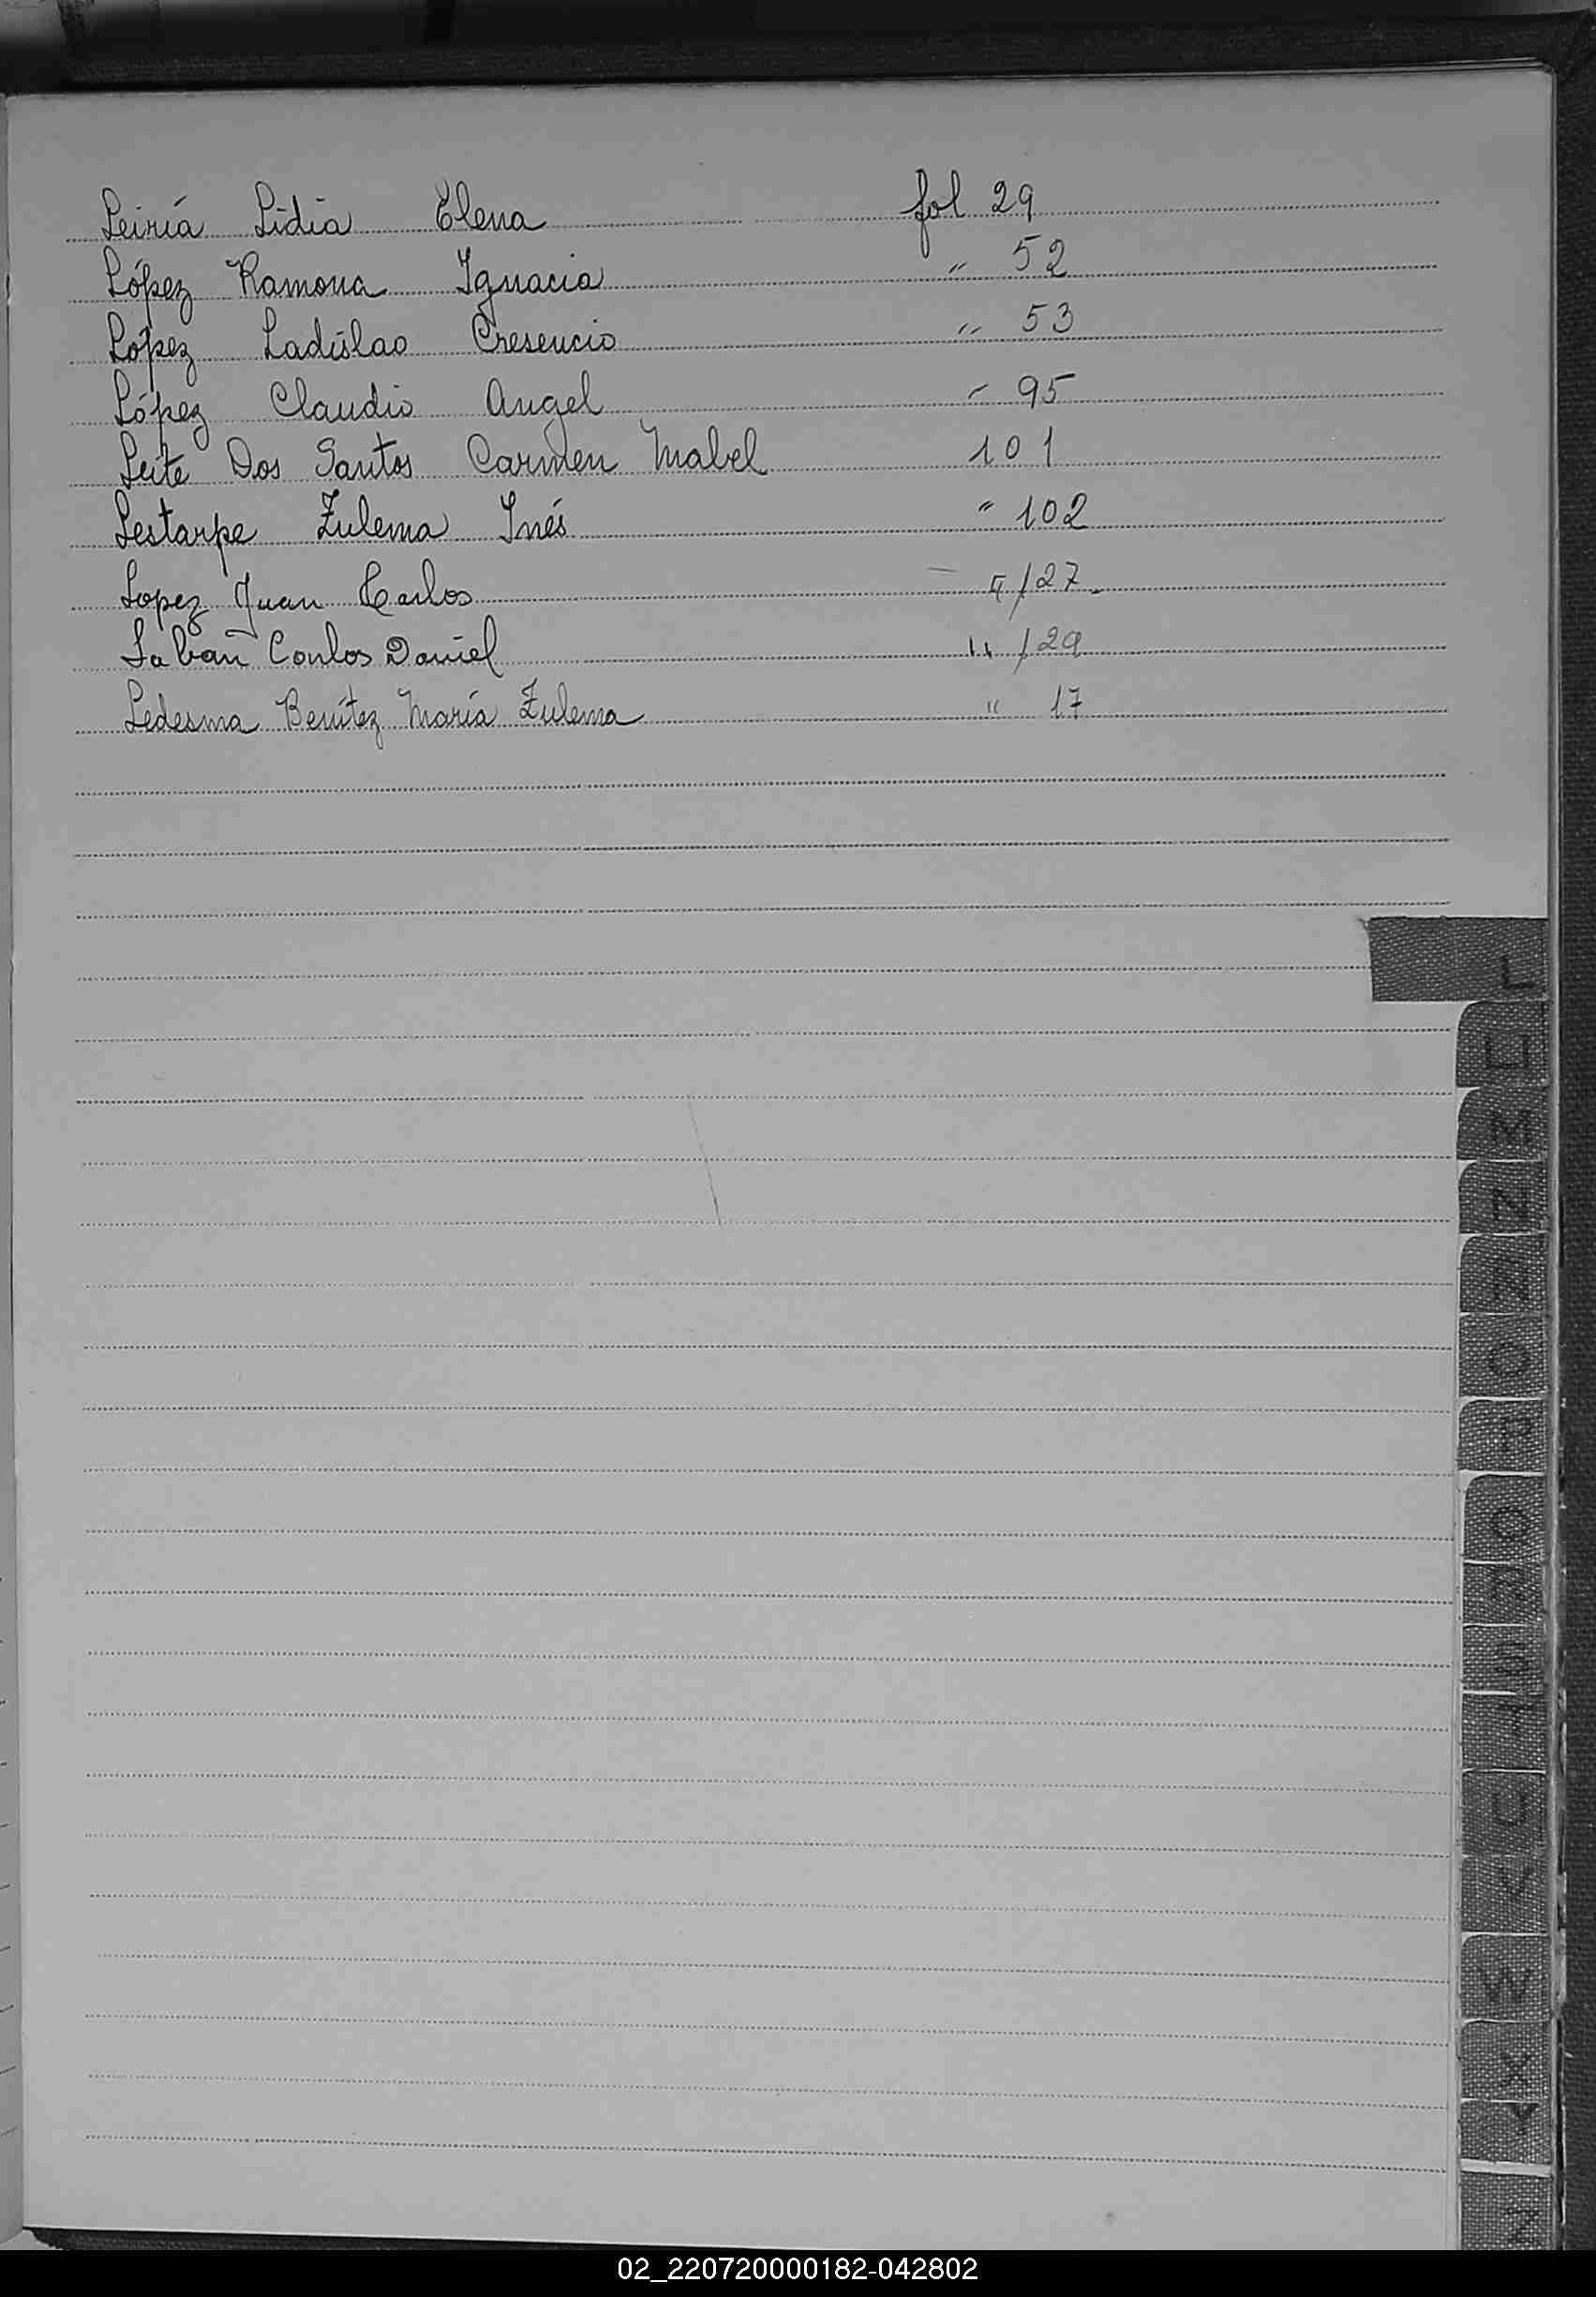 Leiría Lidia Elena fol 29
López Ramona Ignacia " 52
López Ladislao Cresencio " 53
López Claudio Angel " 95
Leite Dos Santos Carmen Mabel 101
Lestarpe Zulema Inés " 102
Lopez Juan Carlos " /27
Labañ Carlos Daniel " /29
Ledesma Benítez María Zulema " 17
L
LL
M
N
Ñ
O
P
Q
R
S
T
U
V
W
X
Y
Z
02_220720000182-042802